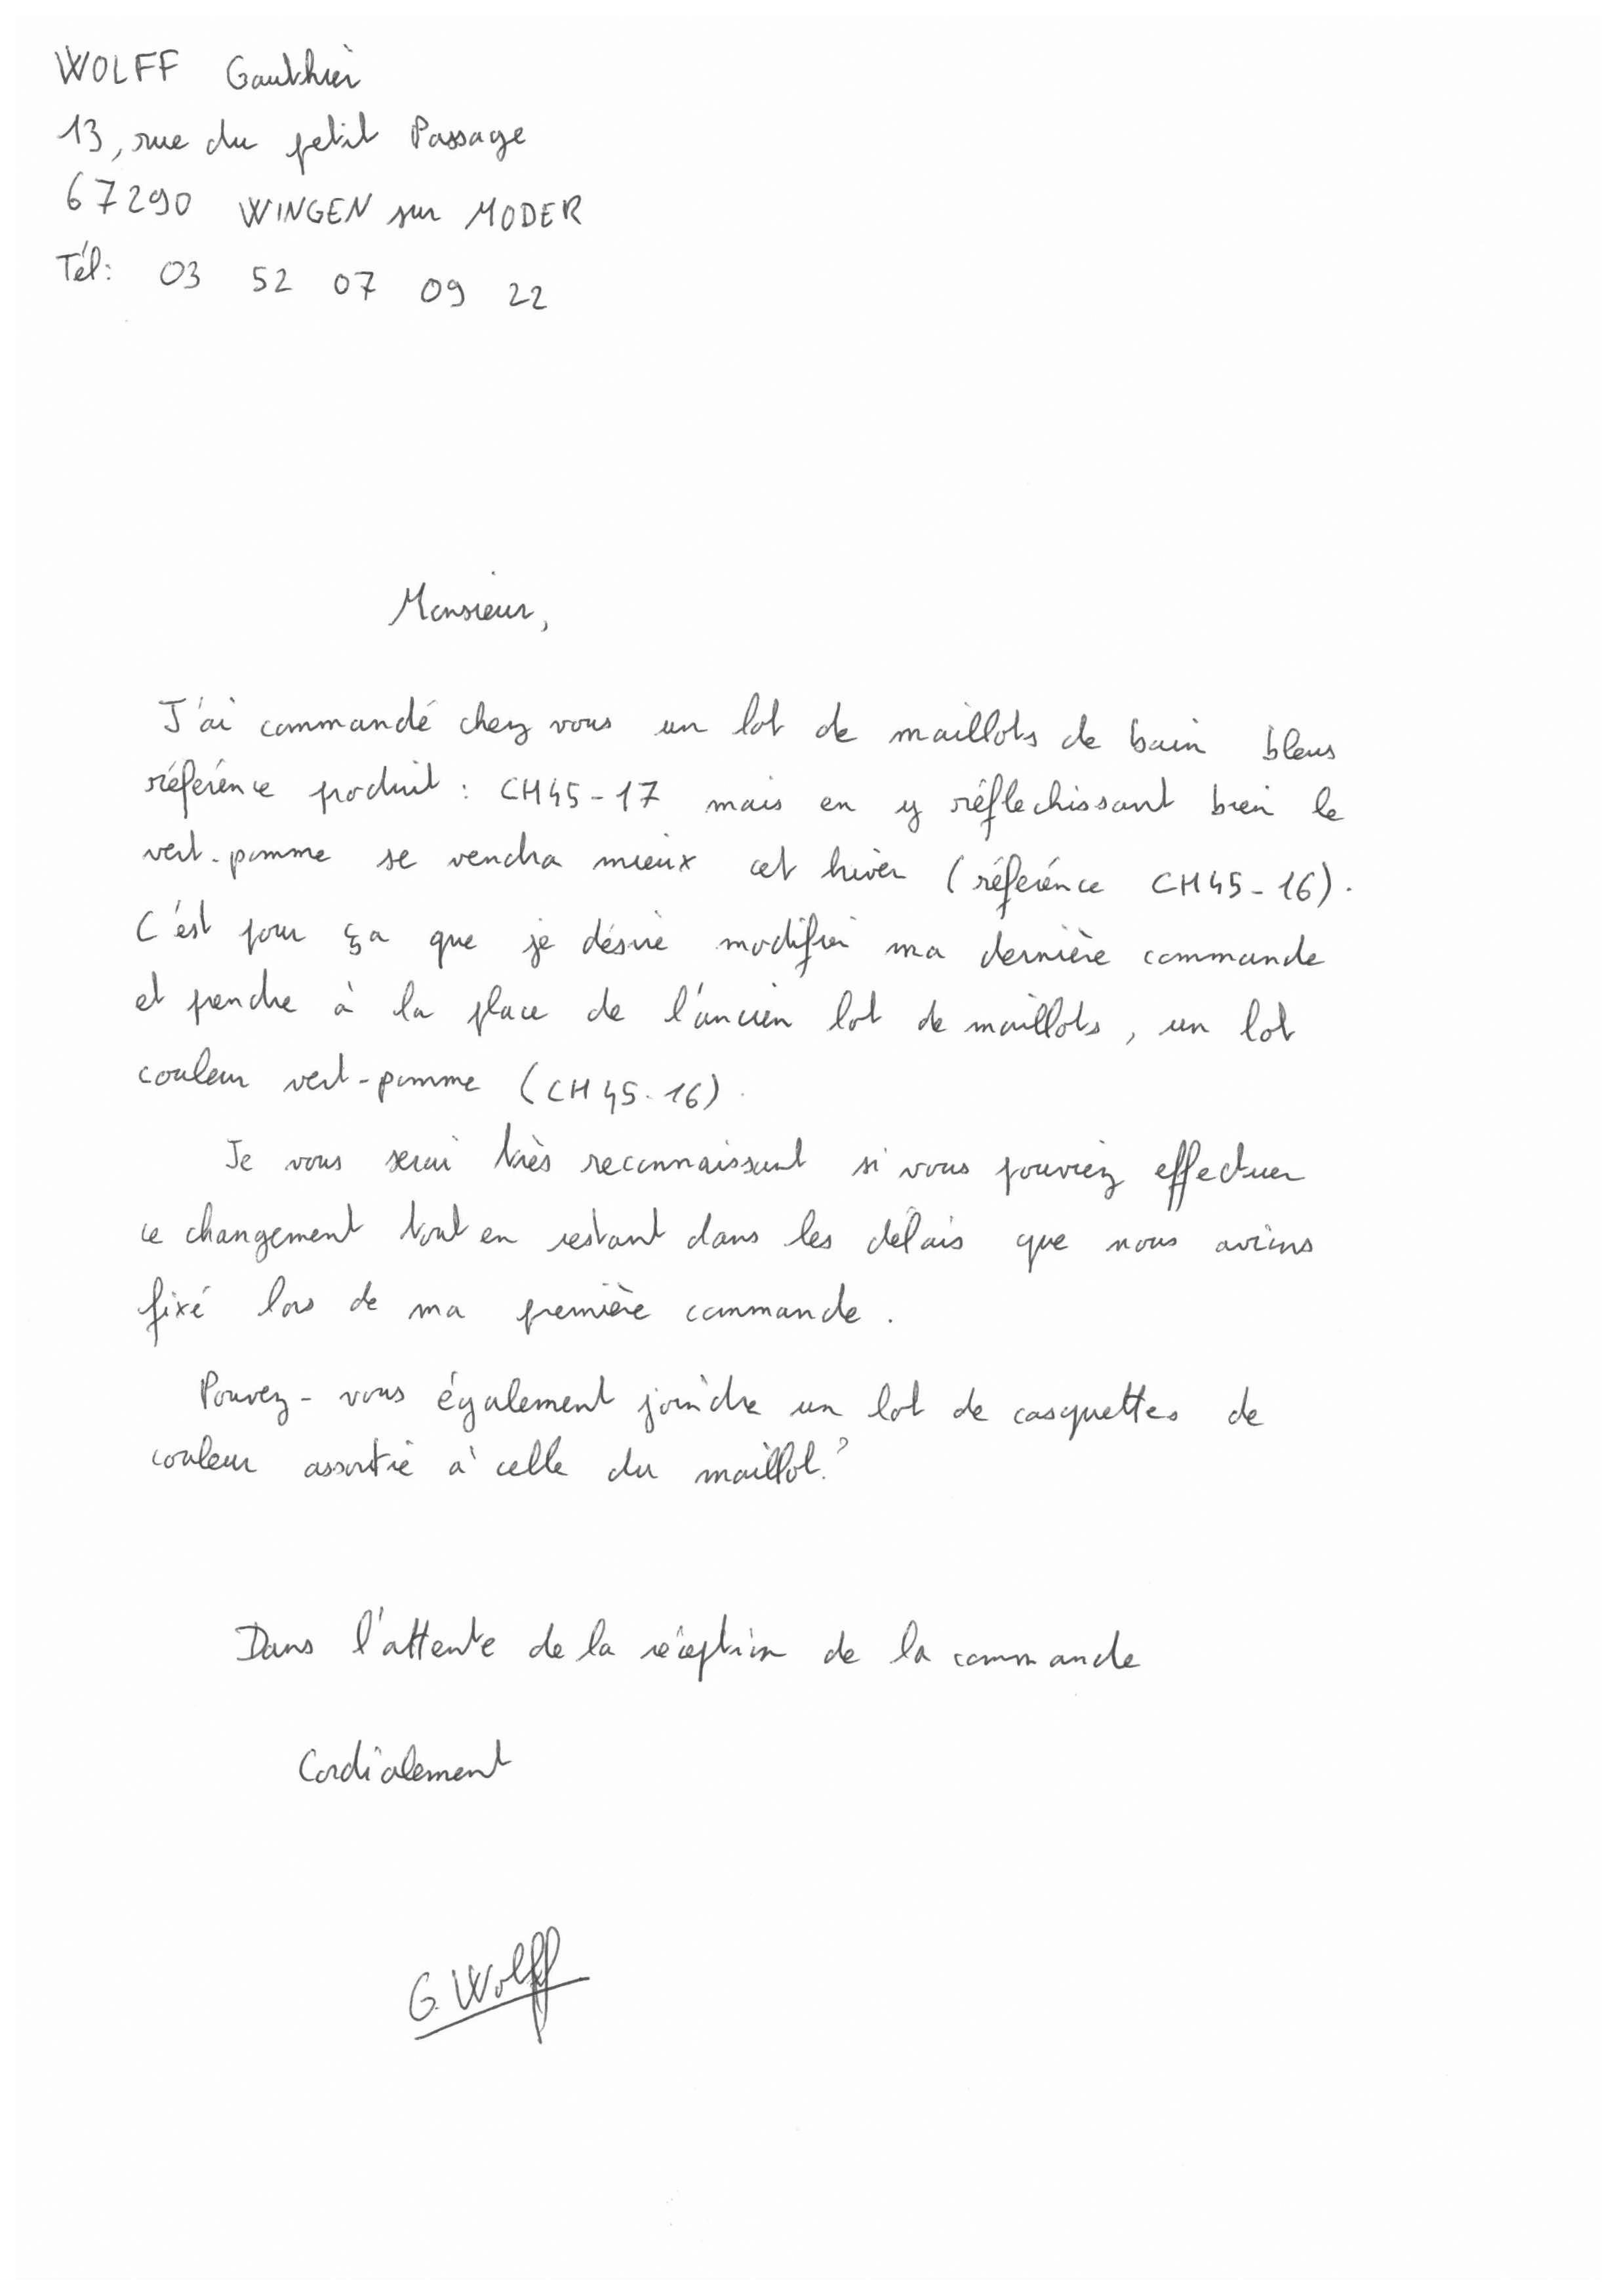 WOLFF Gauthier
13, rue du petit Passage
67290 WINGEN sur MODER
Tél: 03 52 07 09 22
Monsieur,
J'ai commandé chez vous un lot de maillots de bain bleus
référence produit : CH45-17 mais en y réflechissant bien le
vert-pomme se vendra mieux cet hiver (référence CH45-16).
C'est pour ça que je désire modifier ma dernière commande
et prendre à la place de l'ancien lot de maillots, un lot
couleur vert-pomme (CH45-16).
Je vous serai très reconnaissant si vous pouviez effectuer
ce changement tout en restant dans les délais que nous avions
fixé lors de ma première commande.
Pouvez-vous également joindre un lot de casquettes de
couleur assortie à celle du maillot?
Dans l'attente de la réception de la commande
Cordialement
G. Wolff